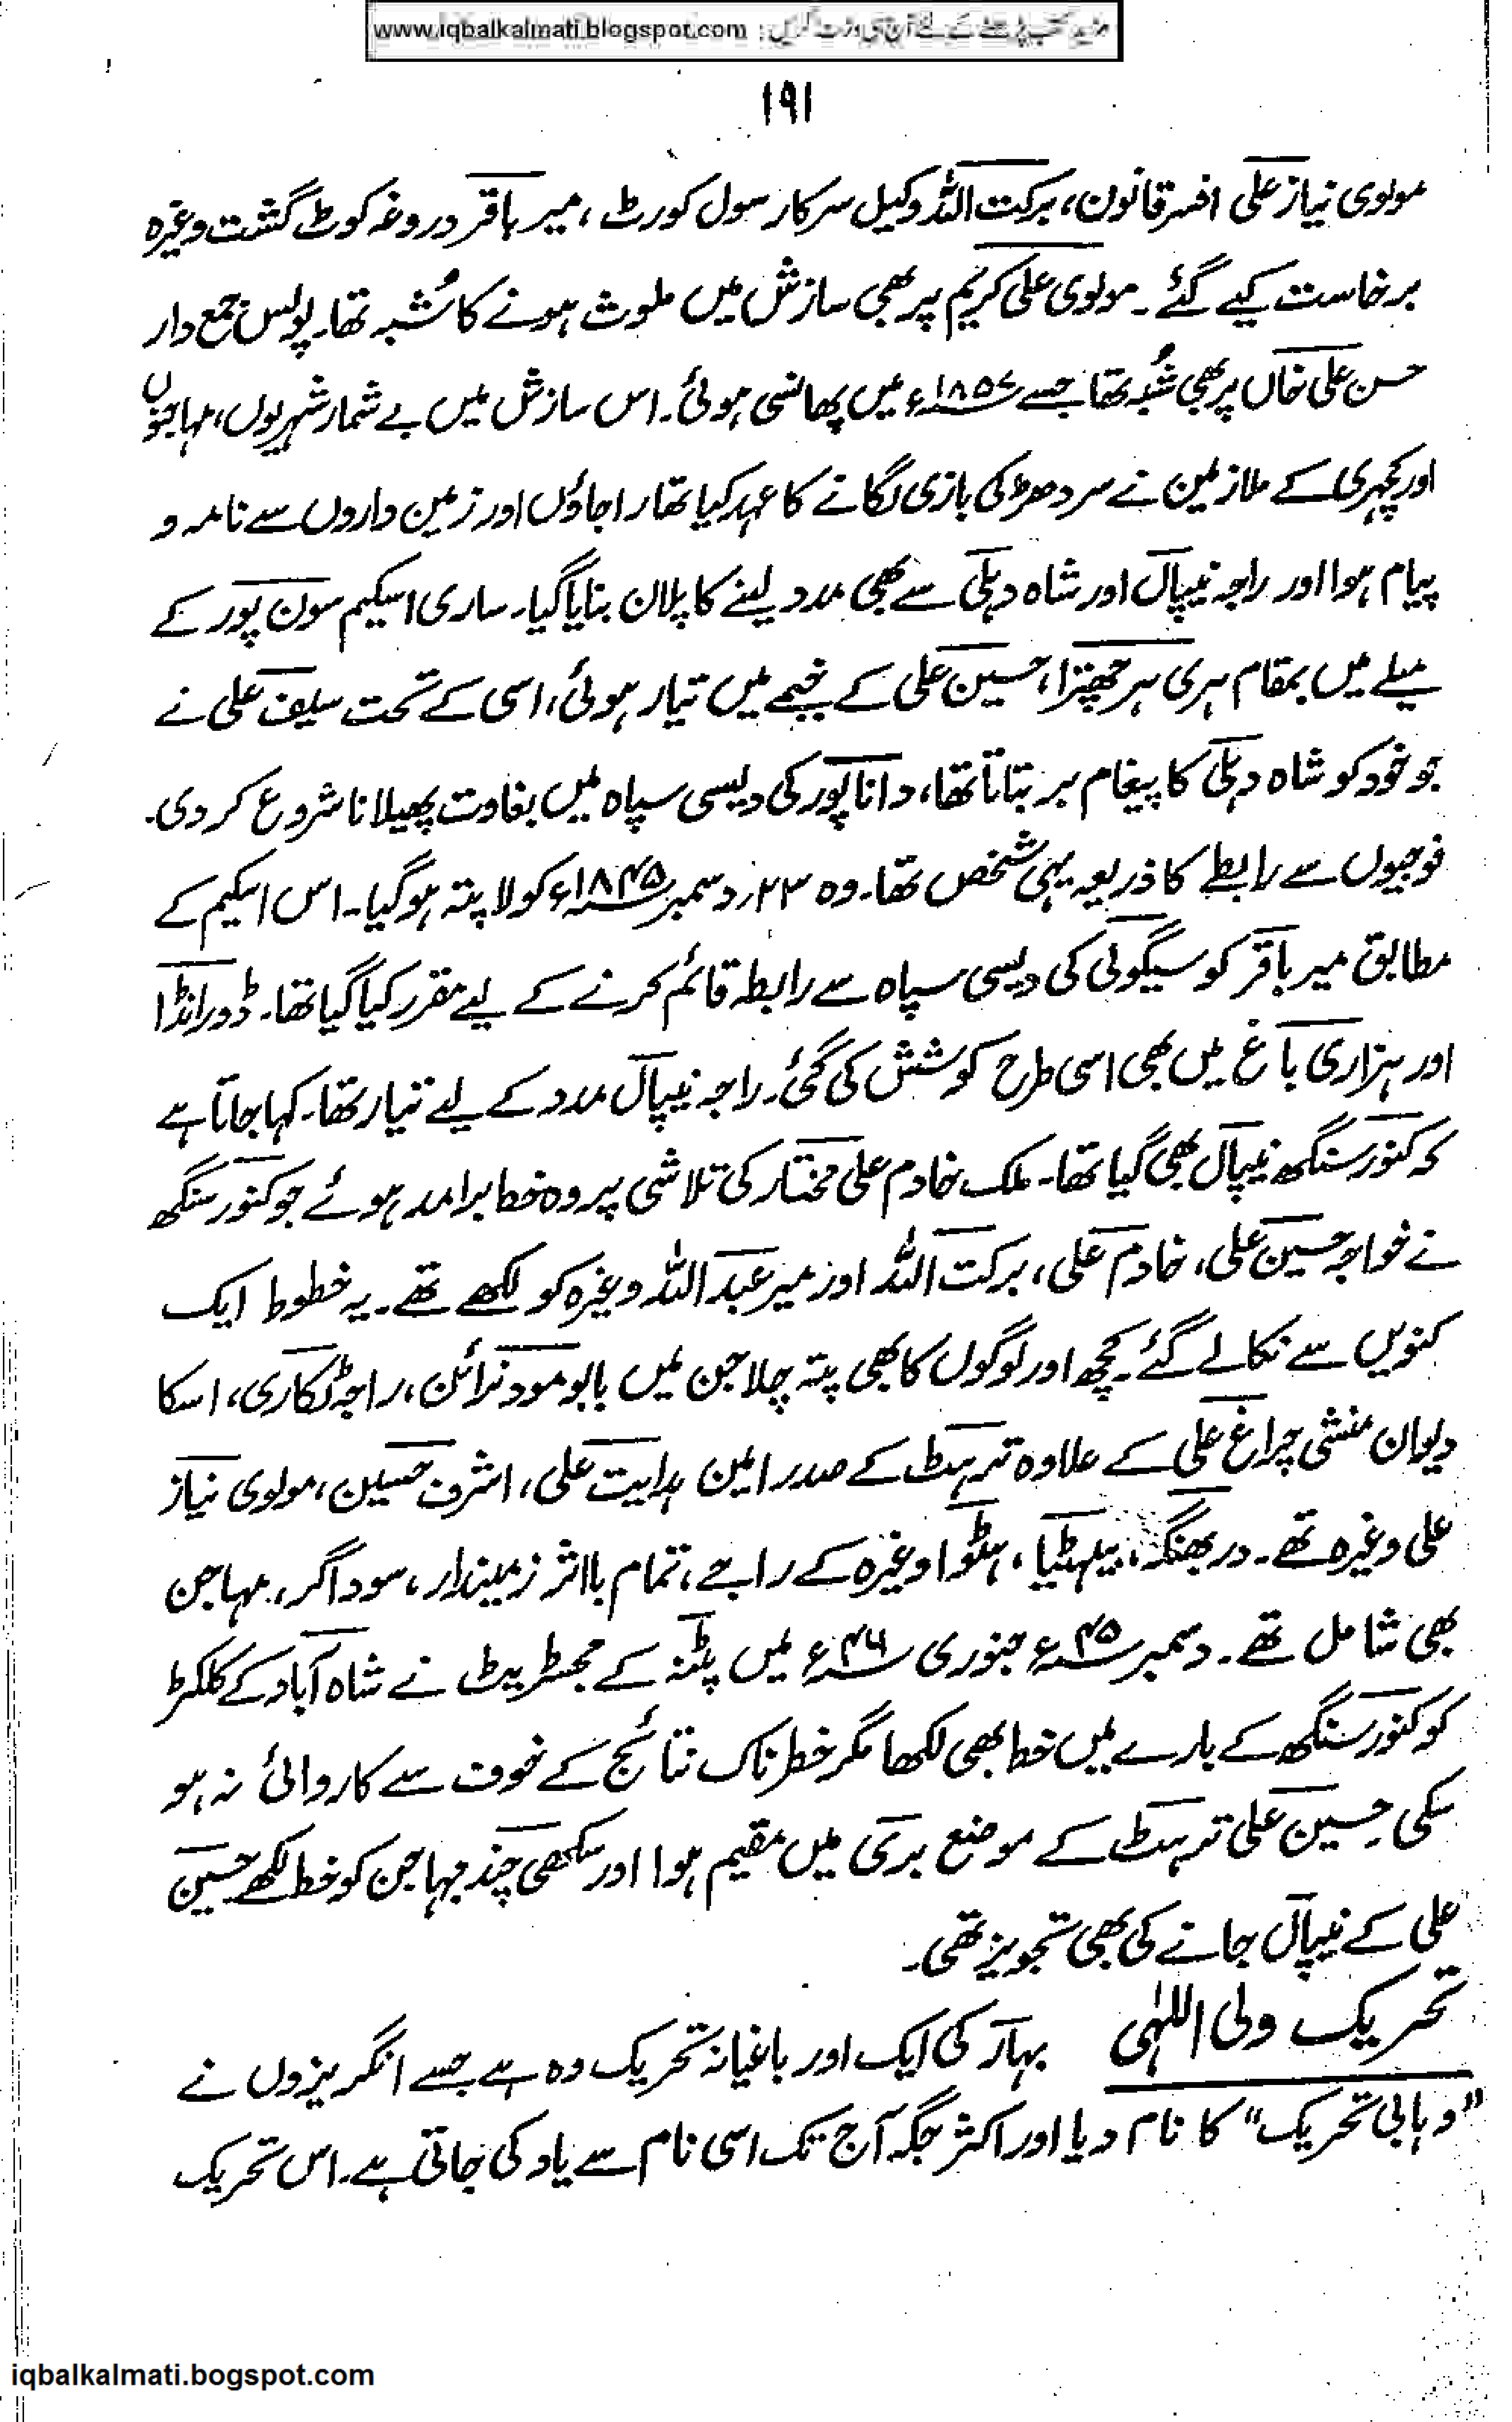 مزید کتب پڑھنے کے لئے آج ہی وزٹ کریں : www.iqbalkalmati.blogspot.com
۱۹۱
مولوی نیاز علی افسر قانون، برکت اللہ وکیل سرکار سول کورٹ، میر باقر دروغہ کوٹ گشت وغیرہ
برخاست کیے گئے۔ مولوی علی کریم پر بھی سازش میں ملوث ہونے کا شُبہ تھا۔ پولس جمع دار
حسن علی خاں پر بھی شُبہ تھا جسے ۱۸۵۷ء میں پھانسی ہوئی۔ اس سازش میں بے شمار شہریوں، مہاجنوں
اور کچہری کے ملازمین نے سر دھڑ کی بازی لگانے کا عہد کیا تھا۔ راجاؤں اور زمین داروں سے نامہ و
پیام ہوا اور راجہ نیپال اور شاہ دہلی سے بھی مدد لینے کا پلان بنایا گیا۔ ساری اسکیم سون پور کے
میلے میں بمقام ہری ہر چھپترا، حسین علی کے خیمے میں تیار ہوئی، اسی کے تحت سیف علی نے
جو خود کو شاہ دہلی کا پیغام بر بتاتا تھا، دانا پور کی دیسی سپاہ میں بغاوت پھیلانا شروع کر دی۔
فوجیوں سے رابطے کا ذریعہ یہی شخص تھا۔ وہ ۲۳؍ دسمبر ۱۸۴۵ء کو لاپتہ ہو گیا۔ اس اسکیم کے
مطابق میر باقر کو سیگولی کی دیسی سپاہ سے رابطہ قائم کرنے کے لیے مقرر کیا گیا تھا۔ ڈورانڈا
اور ہزاری باغ میں بھی اسی طرح کوشش کی گئی۔ راجہ نیپال مدد کے لیے تیار تھا۔ کہا جاتا ہے
کہ کنور سنگھ نیپال بھی گیا تھا۔ ملک خادم علی مختار کی تلاشی پر وہ خط برامد ہوئے جو کنور سنگھ
نے خواجہ حسین علی، خادم علی، برکت اللہ اور میر عبد اللہ وغیرہ کو لکھے تھے۔ یہ خطوط ایک
کنویں سے نکالے گئے۔ کچھ اور لوگوں کا بھی پتہ چلا جن میں بابو مود نرائن، راجہ ٹکاری، اسکا
دیوان منشی چراغ علی کے علاوہ ترہٹ کے صدر امین ہدایت علی، اشرف حسین، مولوی نیاز
علی وغیرہ تھے۔ دربھنگہ، بیہٹیا، ہٹوا وغیرہ کے راجے، تمام بااثر زمیندار، سوداگر، مہاجن
بھی شامل تھے۔ دسمبر ۴۵ء جنوری ۴۶ء میں پٹنہ کے مجسٹریٹ نے شاہ آباد کے کلکٹر
کو کنور سنگھ کے بارے میں خط بھی لکھا مگر خطرناک نتائج کے خوف سے کاروائی نہ ہو
سکی۔ حسین علی ترہٹ کے موضع بری میں مقیم ہوا اور سکھی چند مہاجن کو خط لکھے حسین
علی کے نیپال جانے کی بھی تجویز تھی۔
تحریک ولی اللہی بہار کی ایک اور باغیانہ تحریک وہ ہے جسے انگریزوں نے
"وہابی تحریک" کا نام دیا اور اکثر جگہ آج تک اسی نام سے یاد کی جاتی ہے۔ اس تحریک
iqbalkalmati.bogspot.com